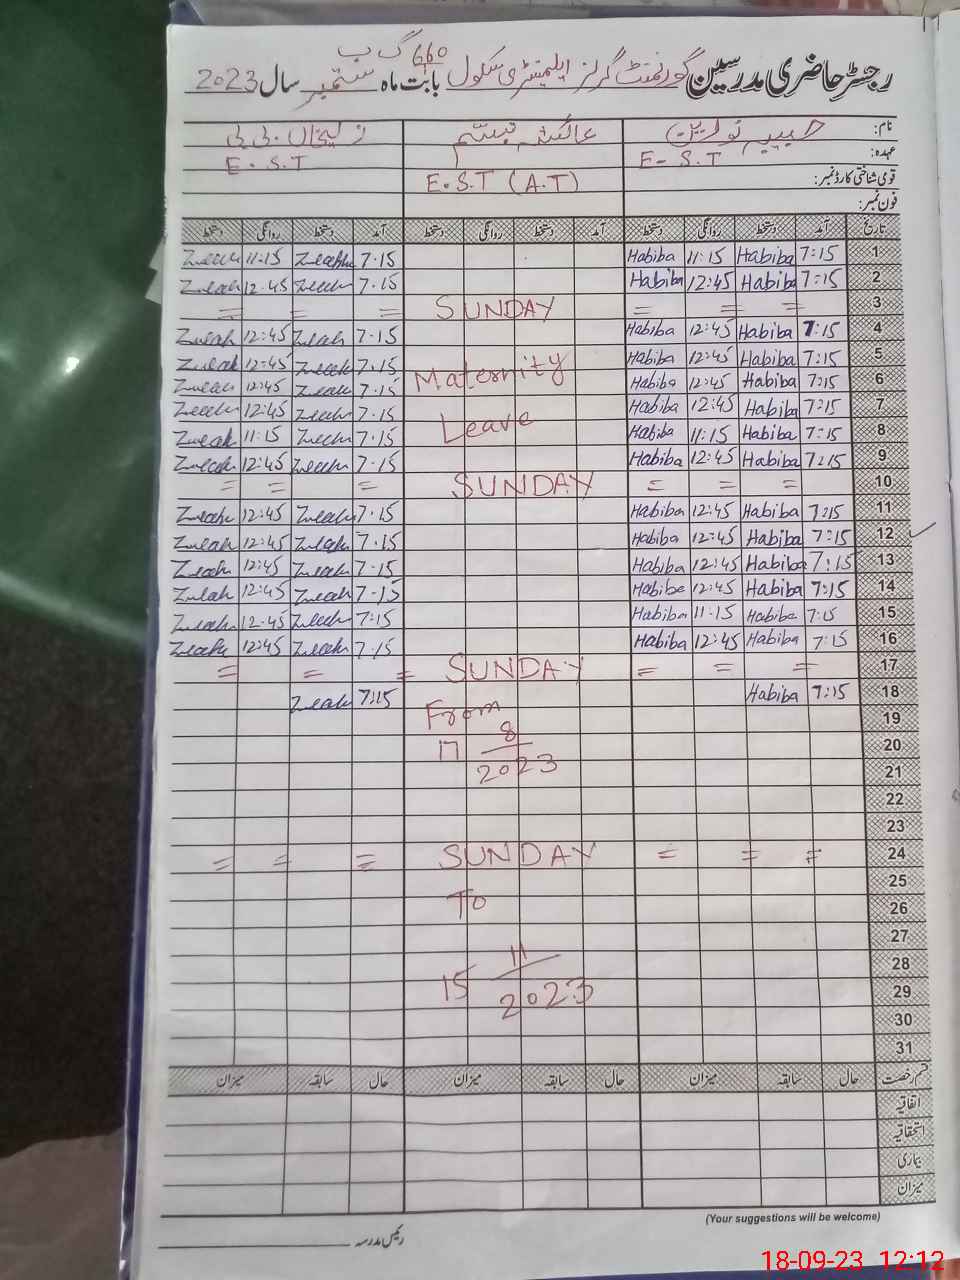 رجسٹر حاضری مدرسین گورنمنٹ گرلز ایلیمنٹری سکول 660 گ ب بابت ماہ ستمبر سال 2023
نام: حبیبہ نورین عائشہ تبسم زلیخاں بی بی
عہدہ: E-S.T E.S.T (A.T) E.S.T
قومی شناختی کارڈ نمبر:
فون نمبر:
تاریخ آمد دستخط روانگی دستخط آمد دستخط روانگی دستخط آمد دستخط روانگی دستخط
1 7:15 Habiba 11:15 Habiba 7.15 11:15
2 7:15 Habiba 12:45 Habiba 7.15 12.45
3 = = = SUNDAY = = =
4 7:15 Habiba 12:45 Habiba 7.15 Zulah 12:45 Zulah
5 7:15 Habiba 12:45 Habiba 7.15 12:45
Maternity
6 7:15 Habiba 12:45 Habiba 7.15 12:45
7 7:15 Habiba 12:45 Habiba 7.15 12:45
Leave
8 7:15 Habiba 11:15 Habiba 7.15 11:15
9 7:15 Habiba 12:45 Habiba 7.15 12:45
10 = = = SUNDAY = = =
11 7:15 Habiba 12:45 Habiba 7.15 12:45
12 7:15 Habiba 12:45 Habiba 7.15 12:45
13 7:15 Habiba 12:45 Habiba 7.15 12:45
14 7:15 Habiba 12:45 Habiba 7.15 12:45
15 7:15 Habiba 11.15 Habiba 7:15 12.45
16 7:15 Habiba 12:45 Habiba 7.15 12:45
17 = = = SUNDAY = = =
18 7:15 Habiba 7:15
From
19
20 17 8
21 2023
22
23
24 = = = SUNDAY = = =
25
26 To
27
28 11
29 15 2023
30
31
قسم رخصت حال سابقہ میزان حال سابقہ میزان حال سابقہ میزان
اتفاقیہ
استحقاقیہ
بیماری
میزان
(Your suggestions will be welcome)
رئیس مدرسہ
18-09-23 12:12